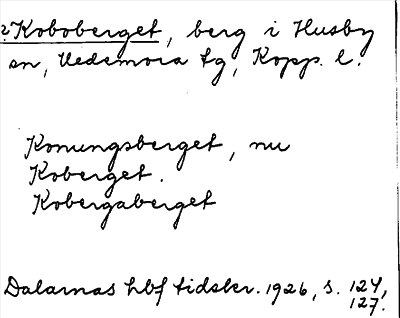 ? Koboberget, berg i Husby
sn, Vedemora tg, Kopp. l.
Konungsberget, nu
Koberget.
Kobergaberget
Dalarnas hbf tidskr. 1926, s. 124,
127.